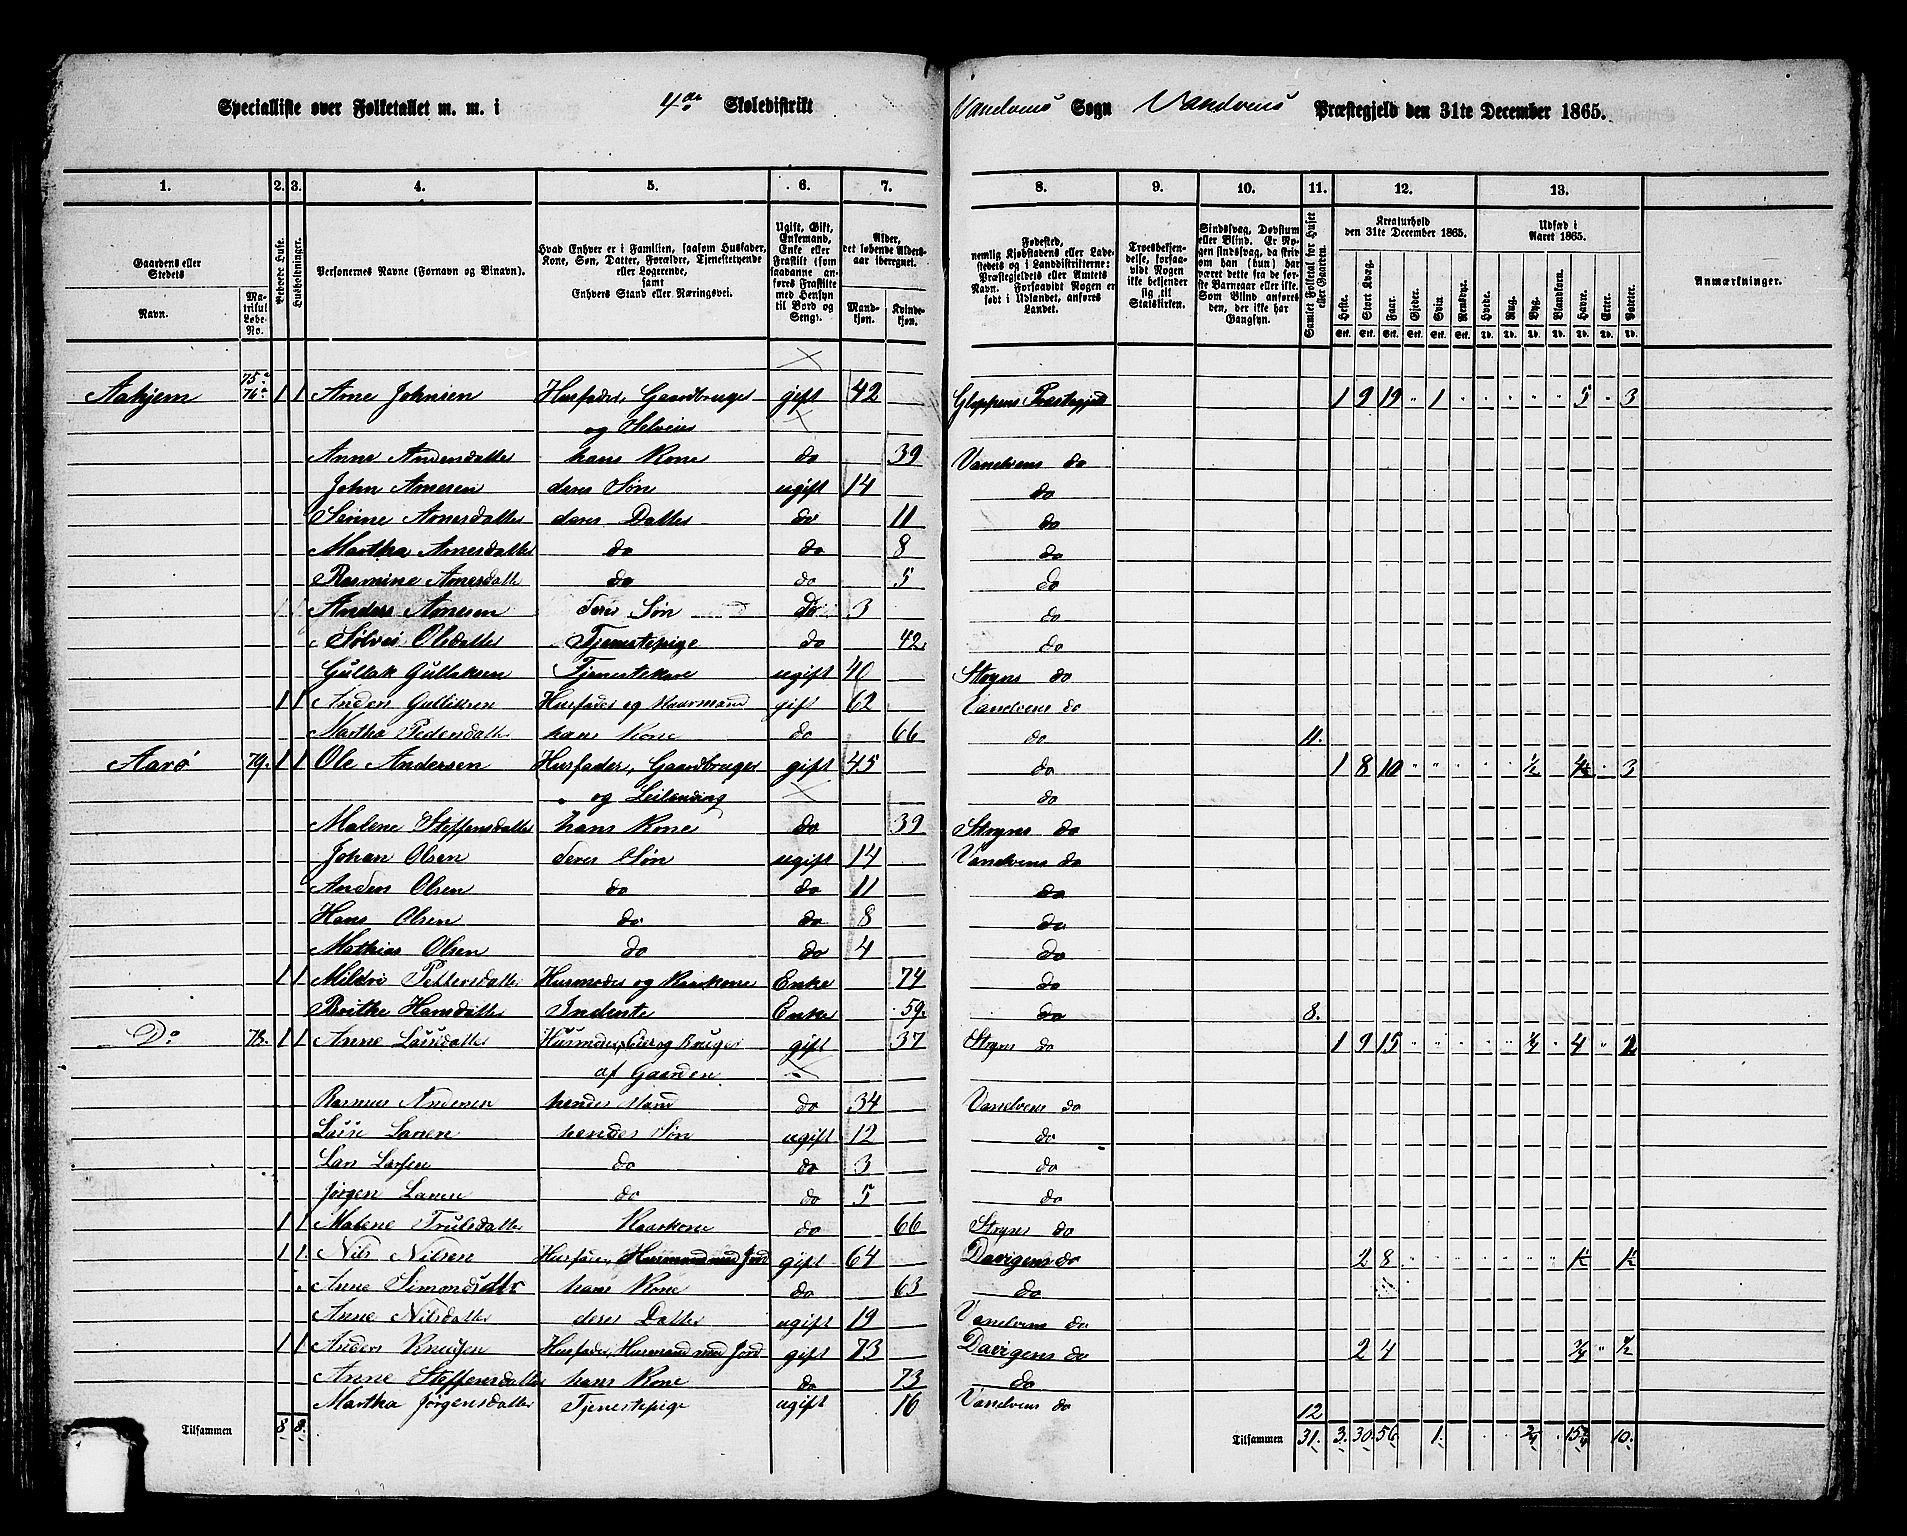 Specialliste over Folketallet m. m. i 4de Skoledistrikt Vandvens Sogn Vandvens Præstegjeld den 31te December 1865.
1. 2. 3. 4. 5. 6. 7. 8. 9. 10. 11. 12. 13.
Gaardens eller Stedets
Navn.
Matrikul Løbe-No.
Beboede Huse.
Husholdninger.
Personernes Navne (Fornavn og Binavn).
Hvad Enhver er i Familien, saasom Husfader, Kone, Søn, Datter, Forældre, Tjenestetyende eller Logerende, samt Enhvers Stand eller Næringsvei.
Ugift, Gift, Enkemand, Enke eller Fraskilt (som saadanne anføres Fraskilte med Hensyn til Bord og Seng).
Alder, det løbende Aldersaar iberegnet.
Mandkjøn.
Kvindekjøn.
Fødested, nemlig Kjøbstadens eller Ladestedets og i Landdistrikterne: Præstegjeldets eller Amtets Navn. Forsaavidt Nogen er født i Udlandet, anføres Landet.
Troesbekjendelse, forsaavidt Nogen ikke bekjender sig til Statskirken.
Sindssvag, Døvstum eller Blind. Er Nogen sindssvag, da skrives om han (hun) har været dette fra de første Barneaar eller ikke. Som Blind anføres den, der ikke har Gangsyn.
Samlet Folketal for Huset eller Gaarden.
Kreaturhold den 31te December 1865.
Heste. Stort Kvæg. Faar. Gjeder. Svin. Rensdyr.
Udsæd i Aaret 1865.
Hvede. Rug. Byg. Blandkorn. Havre. Erter. Poteter.
Anmærkninger.
75a
Aahjem 76a 1 1 Arne Johnsen Husfader, Gaardbruger gift 42 Gloppens Præstegjeld 1 9 19 " 1 5 3
og Selveier
Anne Andersdatter hans Kone do 39 Vandvens do
John Arnesen deres Søn ugift 14 do
Sevine Arnesdatter deres Datter do 11 do
Martha Arnesdatter do do 8 do
Rasmine Arnesdatter do do 5 do
Anders Arnesen deres Søn do 3 do
Sølvei Olsdatter Tjenestepige do 42 do
Gullak Gullaksen Tjenestekarl ugift 40 Stryns do
1 1 Anders Gulliksen Husfader og Kaarmand gift 62 Vandvens do
Martha Pedersdatter hans Kone do 66 do 11.
Aarö 79. 1 1 Ole Andersen Husfader, Gaardbruger gift 45 do 1 8 10 1/2 4 1/2 3
og Leilending do
Malene Steffensdatter hans Kone do 39 Stryns do
Johan Olsen deres Søn ugift 14 Vandvens do
Anders Olsen do do 11 do
Hans Olsen do do 8 do
Mathias Olsen do do 4 do
1 1 Mildri Pettersdatter Husmoder og Kaarkone Enke 74 do
Brithe Hansdatter Inderste Enke 59. do 8.
Do 78. 1 1 Anne Lassedatter Husmoder, Eier og Bruger gift 37 Stryns do 1 9 15 1/4 4 2
af Gaarden
Rasmus Andersen hendes Mand do 34 Vandvens do
Lasse Larsen hendes Søn ugift 12 do
Lars Larsen do do 3 do
Jørgen Larsen do do 5 do
1 1 Malene Trulsdatter Kaarkone do 66 Stryns do
1 1 Nils Nilsen Husfader, Husmand med Jord gift 64 Davigens do 2 8 1 1/2 1 1/2
Anne Simonsdatter hans Kone do 63 do
Anne Nilsdatter deres Datter ugift 19 Vandvens do
1 1 Anders Knudsen Husfader, Husmand med Jord gift 73 Davigens do 2 4 3/4 1/2
Anne Steffensdatter hans Kone do 73 do
Martha Jørgensdatter Tjenestepige ugift 16 Vandvens do 12
Tilsammen 8 8. Tilsammen 31. 3. 30. 56 1. 3/4 15 3/4 10.